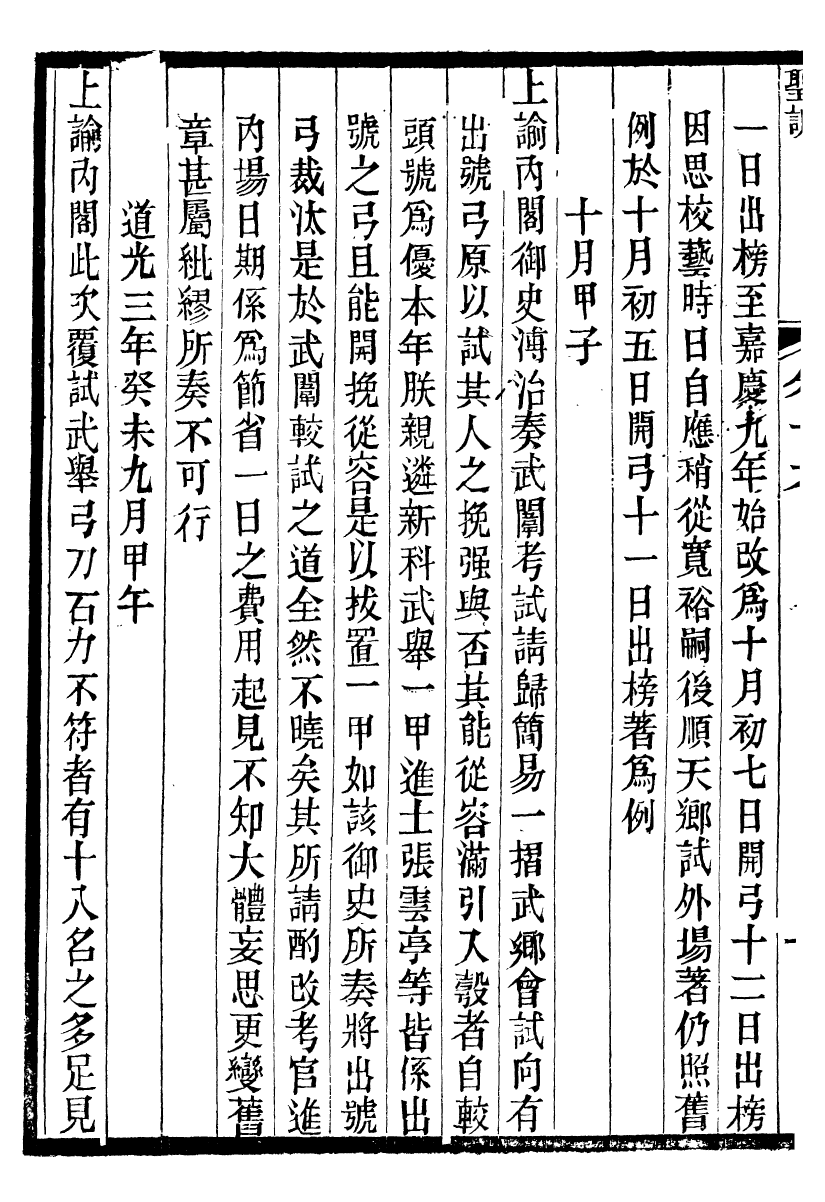 聖訓
一日出榜至嘉慶九年始改爲十月初七日開弓十二日出榜
因思校藝時日自應稍從寬裕嗣後順天鄉試外場著仍照舊
例於十月初五日開弓十一日出榜著爲例
十月甲子
上諭內閣御史溥治奏武闈考試請歸簡易一摺武鄉會試向有
出號弓原以試其人之挽强與否其能從容滿引入彀者自較
頭號爲優本年朕親遴新科武舉一甲進士張雲亭等皆係出
號之弓且能開挽從容是以拔置一甲如該御史所奏將出號
弓裁汰是於武闈較試之道全然不曉矣其所請酌改考官進
內場日期係爲節省一日之費用起見不知大體妄思更變舊
章甚屬紕繆所奏不可行
道光三年癸未九月甲午
上諭內閣此次覆試武舉弓刀石力不符者有十八名之多足見